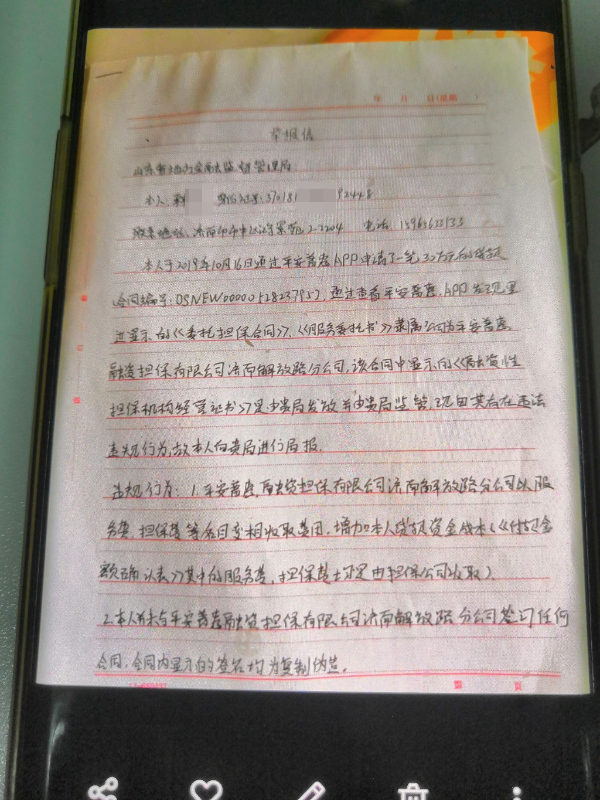 年 月 日(星期 )
举报信
山东省地方金融监督管理局
本人 身份证号:370181 92448
联系地址:济南市市中区 2-2204 电话:
本人于2019年10月16日通过平安普惠APP申请了一笔30万元的贷款
合同编号:DSNEW0000528237957 通过查看平安普惠APP发现里
边显示的《委托担保合同》、《服务委托书》隶属公司为平安普惠
融资担保有限公司济南解放路分公司,该合同中显示的《融资性
担保机构经营许可证书》是由贵局发放并由贵局监管,现因其存在违法
违规行为,故本人向贵局进行举报.
违规行为:1.平安普惠融资担保有限公司济南解放路分公司以服
务费、担保费等名目变相收取费用,增加本人贷款资金成本(《付款金
额确认表》其中的服务费,担保费均是由担保公司收取)
2.本人并未与平安普惠融资担保有限公司济南解放路分公司签订任何
合同,合同内显示的签名均为复制伪造.
第 页